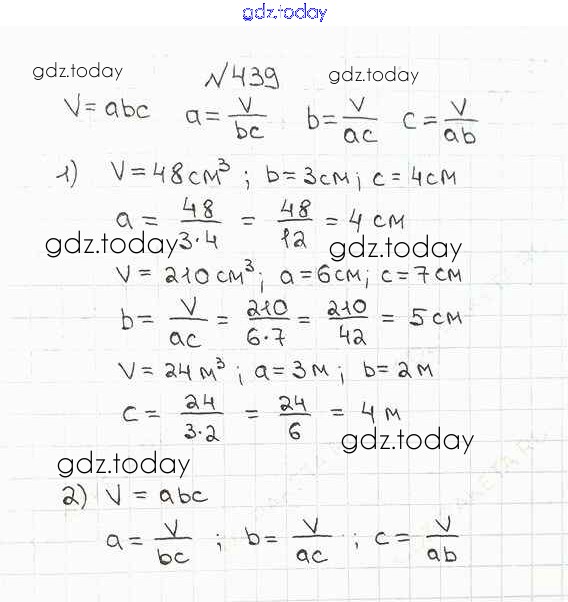 gdz.today
gdz.today №439 gdz.today
V=abc a=V/bc b=V/ac c=V/ab
1) V=48см³; b=3см; c=4см
a = 48/3·4 = 48/12 = 4 см
gdz.today gdz.today
V= 210см³; a=6см; c=7см
b= V/ac = 210/6·7 = 210/42 = 5см
V= 24м³; a=3м; b=2м
c = 24/3·2 = 24/6 = 4м
gdz.today gdz.today
2) V = abc
a= V/bc ; b= V/ac ; c= V/ab